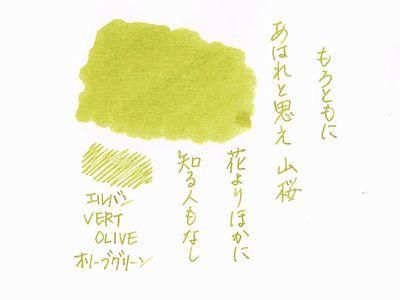 もろともに
あはれと思え 山桜
花よりほかに
知る人もなし
エルバン
VERT
OLIVE
オリーブグリーン